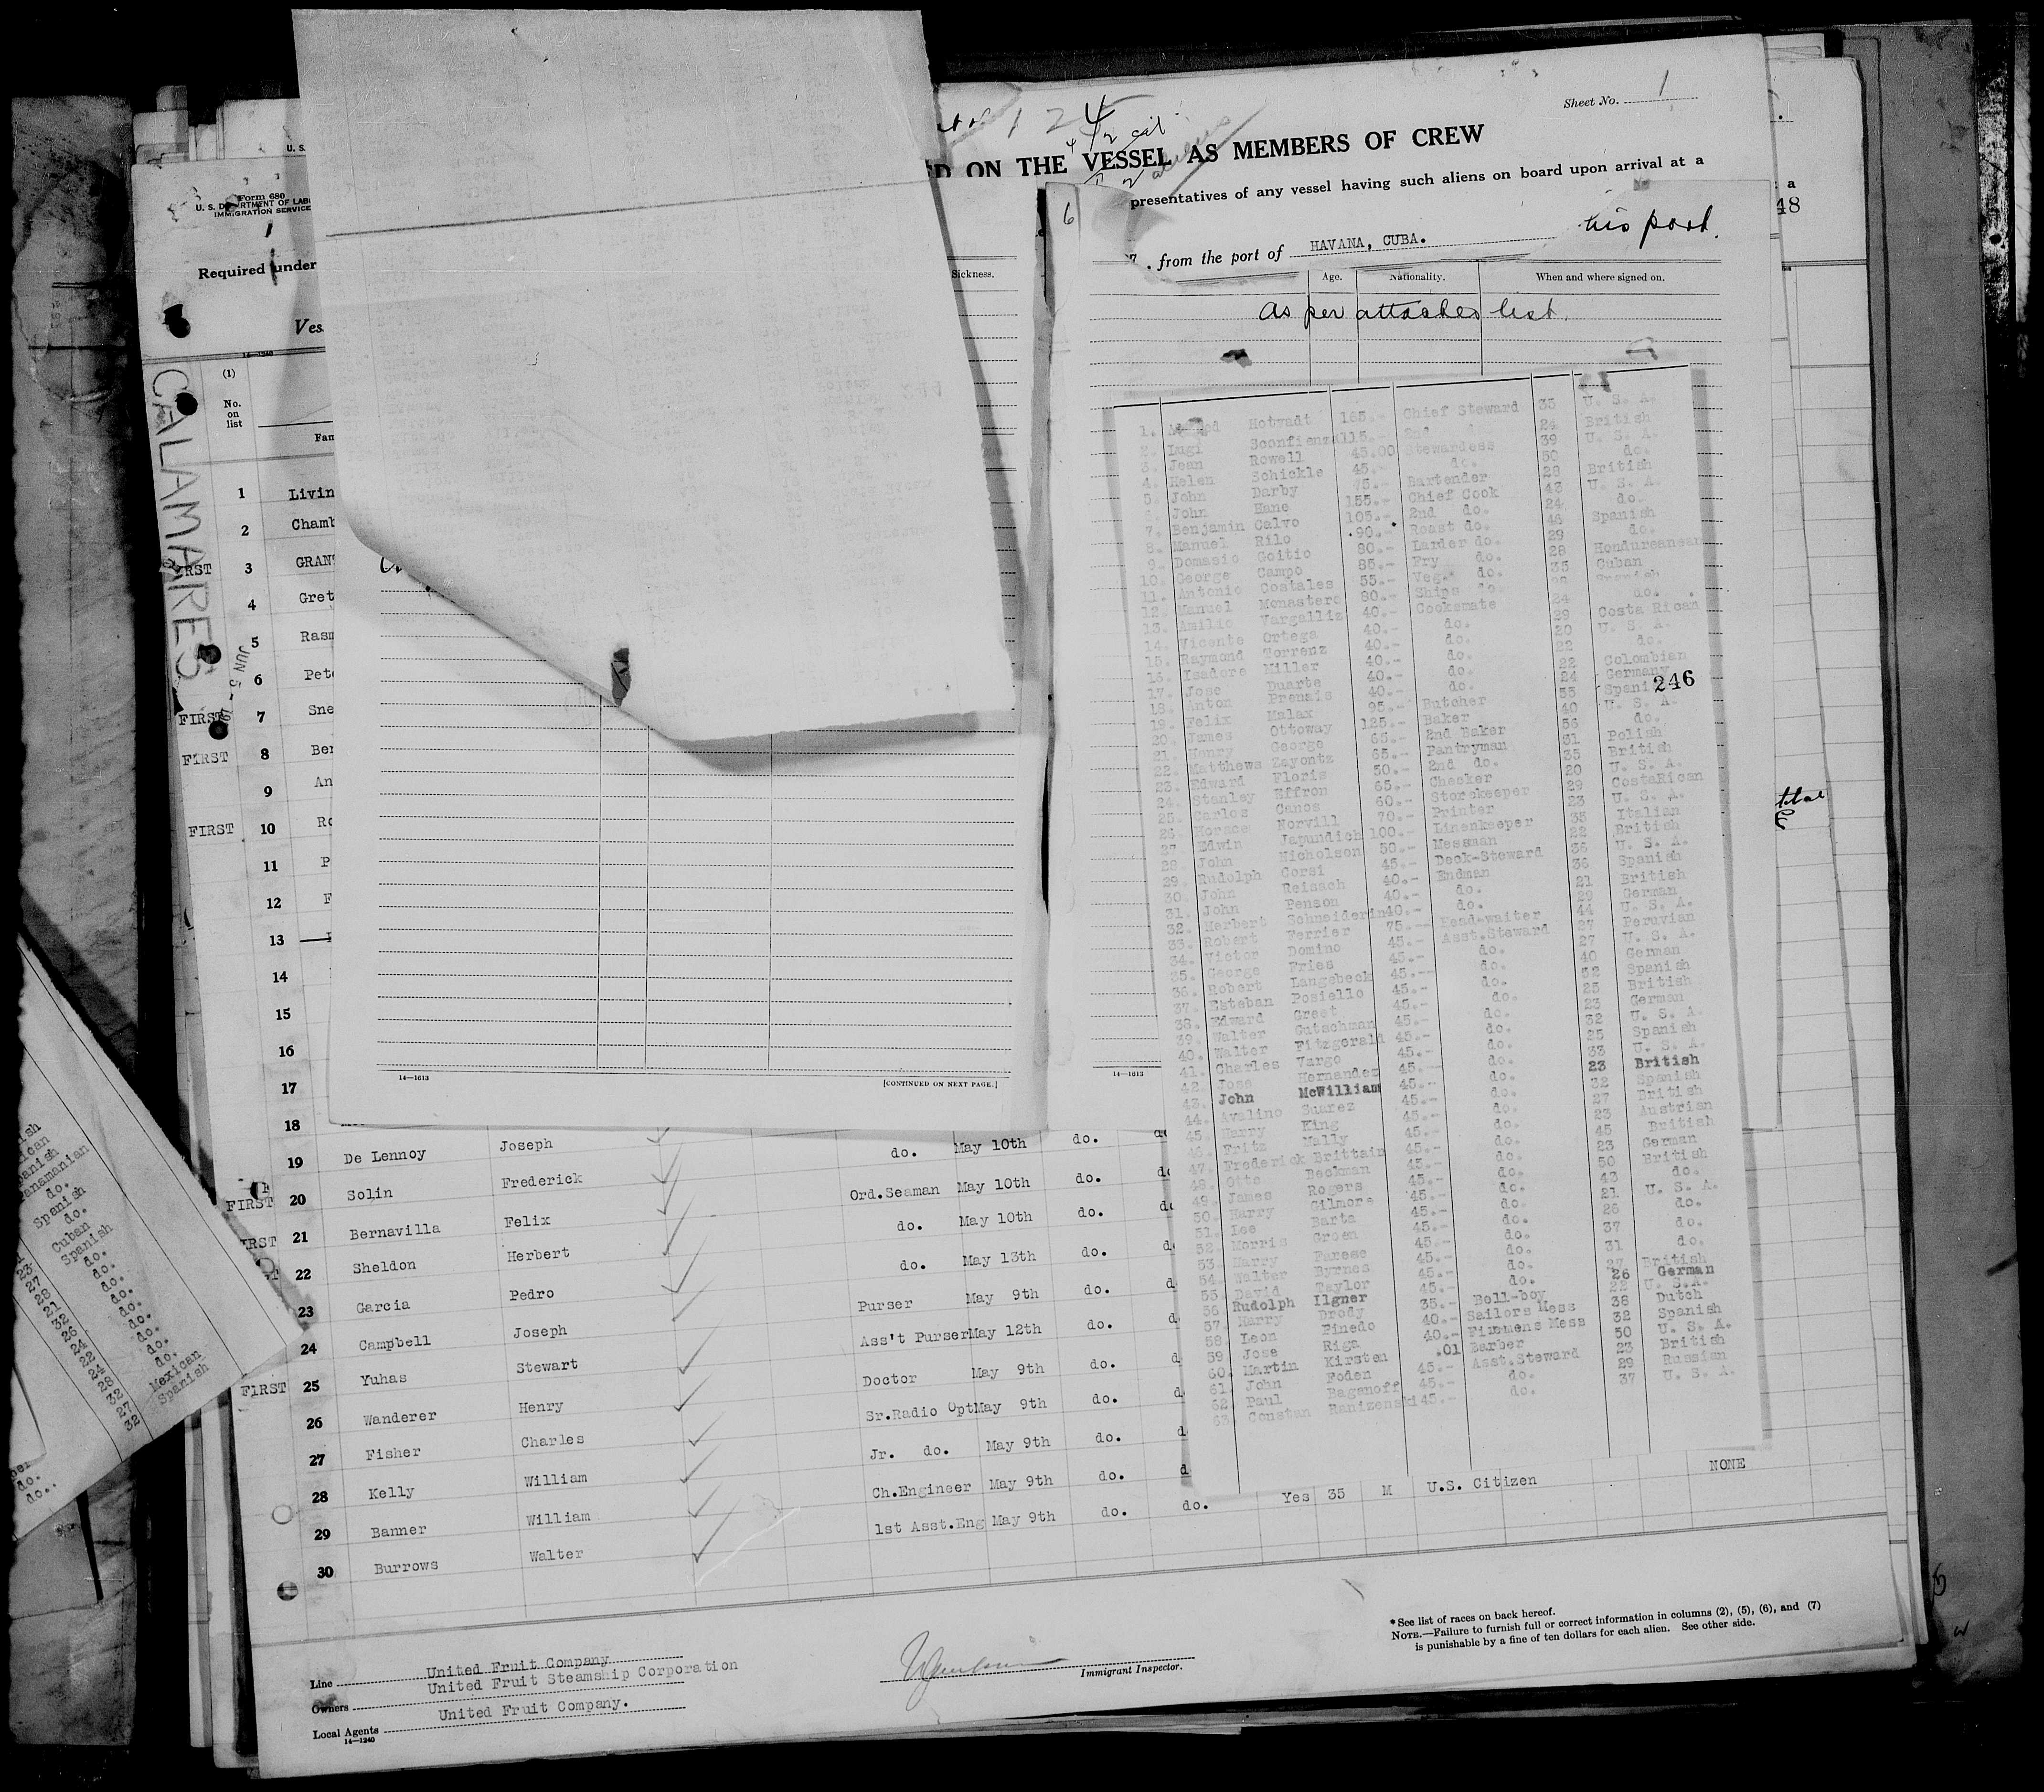 Sheet No. 1
ON THE VESSEL AS MEMBERS OF CREW
presentatives of any vessel having such aliens on board upon arrival at a
from the port of HAVANA, CUBA. this port.
Sickness.
Age. Nationality. When and where signed on.
As per attached list.
6
48
Form 680
U. S. DEPARTMENT OF LAB
IMMIGRATION SERVICE
Required under
Ves
14—1240
CALAMARES
JUN 5
(1)
No.
on
list
Fam
1 Livin
2 Chamb
RST 3 GRAN
4 Gret
5 Rasm
6 Pete
FIRST 7 Sne
FIRST 8 Ber
9 An
FIRST 10 Ro
11 P
12 F
13
14
15
16
17
18
19 De Lennoy Joseph do. May 10th do.
FIRST 20 Solin Frederick Ord.Seaman May 10th do.
IRST 21 Bernavilla Felix do. May 10th do.
22 Sheldon Herbert do. May 13th do.
23 Garcia Pedro Purser May 9th do.
24 Campbell Joseph Ass't Purser May 12th do.
FIRST 25 Yuhas Stewart Doctor May 9th do.
26 Wanderer Henry Sr.Radio Opt May 9th do.
27 Fisher Charles Jr. do. May 9th do.
28 Kelly William Ch.Engineer May 9th do.
29 Banner William 1st Asst.Eng May 9th do. do. Yes 35 M U.S. Citizen NONE
30 Burrows Walter
14—1613 [CONTINUED ON NEXT PAGE.]
14—1613
246
1. Hotvadt 165.- Chief Steward 35 U. S. A.
2. Luigi Sconfienza 115.- 2nd 24 British
3. Jean Rowell 45.00 Stewardess 39 U. S. A.
4. Helen Schickle 45.- do. 50 do.
5. John Darby 75.- Bartender 28 British
John Hane 155.- Chief Cook 43 U. S. A.
7. Benjamin Calvo 105.- 2nd do. 24 do.
8. Manuel Rilo 90.- Roast do. 46 Spanish
9. Domasio Goitio 80.- Larder do. 29 do.
10. George Campo 85.- Fry do. 28 Hondurean
11. Antonio Costales 55.- Veg. do. 35 Cuban
12. Manuel Monastero 80.- Ships do. Spanish
13. Amilio Vargalliz 40.- Cooksmate 24 do.
14. Vicente Ortega 40.- do. 29 Costa Rican
15. Raymond Torrenz 40.- do. 20 U. S. A.
16. Isadore Miller 40.- do. 22 do.
17. Jose Duarte 40.- do. 22 Colombian
18. Anton Prenais 40.- do. 24 Germany
19. Felix Malax 95.- Butcher 55
20. James Ottoway 125.- Baker 40 U. S. A.
21. Henry George 65.- 2nd Baker 56 do.
22. Matthews Zayontz 65.- Pantryman 31 Polish
23. Edward Floris 50.- 2nd do. 35 British
24. Stanley Effron 65.- Checker 20 U. S. A.
25. Carlos Canos 60.- Storekeeper 29 CostaRican
26. Horace Norvill 70.- Printer 23 U. S. A.
27. Edwin Japundich 100.- Linenkeeper 35 Italian
28. John Nicholson 50.- Messman 22 British
29. Rudolph Corsi 45.- Deck-Steward 36 U. S. A.
30. John Reisach 40.- Endman 36 Spanish
31. John Penson 40.- do. 21 British
32. Herbert Schneiderin 40.- do. 29 German
33. Robert Ferrier 75.- Head-waiter 44 U. S. A.
34. Victor Domino 45.- Asst.Steward 27 Peruvian
35. George Fries 45.- do. 27 U. S. A.
36. Robert Langebeck 45.- do. 40 German
37. Esteban Posiello 45.- do. 52 Spanish
38. Edward Greet 45.- do. 25 British
39. Walter Gutschman 45.- do. 23 German
40. Walter Fitzgerald 45.- do. 32 U. S. A.
41. Charles Vargo 45.- do. 25 Spanish
42. Jose Hernandez 45.- do. 33 U. S. A.
43. John McWilliam 45.- do. 23 British
44. Avalino Suarez 45.- do. 32 Spanish
45. Harry King 45.- do. 27 British
46. Fritz Wally 45.- do. 23 Austrian
47. Frederick Brittain 45.- do. 45 British
48. Otto Beckman 45.- do. 23 German
49. James Rogers 45.- do. 50 British
50. Harry Gilmore 45.- do. 43 do.
51. Lee Barta 45.- do. 21 U. S. A.
52. Morris Green 45.- do. 26 do.
53. Harry Farese 45.- do. 37 do.
54. Walter Byrnes 45.- do. 31 do.
55. David Taylor 45.- do. 27 British
56. Rudolph Ilgner 45.- do. 26 German
57. Harry Brody 35.- Bell-boy 22 U. S.A.
58. Leon Pinedo 40.- Sailors Mess 38 Dutch
59. Jose Riga 40.- Firemens Mess 32 Spanish
60. Martin Kirsten .01 Barber 50 U. S. A.
61. John Foden 45.- Asst.Steward 23 British
62. Paul Baganoff 45.- do. 29 Russian
63. Constan Ranizenski 45.- do. 37 U. S. A.
anamanian
do.
Spanish
do.
Cuban
Spanish
do.
do.
do.
do.
do.
do.
do.
Mexican
Spanish
do.
do.
Line United Fruit Company
Owners United Fruit Steamship Corporation
Local Agents United Fruit Company.
14—1240
Immigrant Inspector.
*See list of races on back hereof.
NOTE.—Failure to furnish full or correct information in columns (2), (5), (6), and (7)
is punishable by a fine of ten dollars for each alien. See other side.